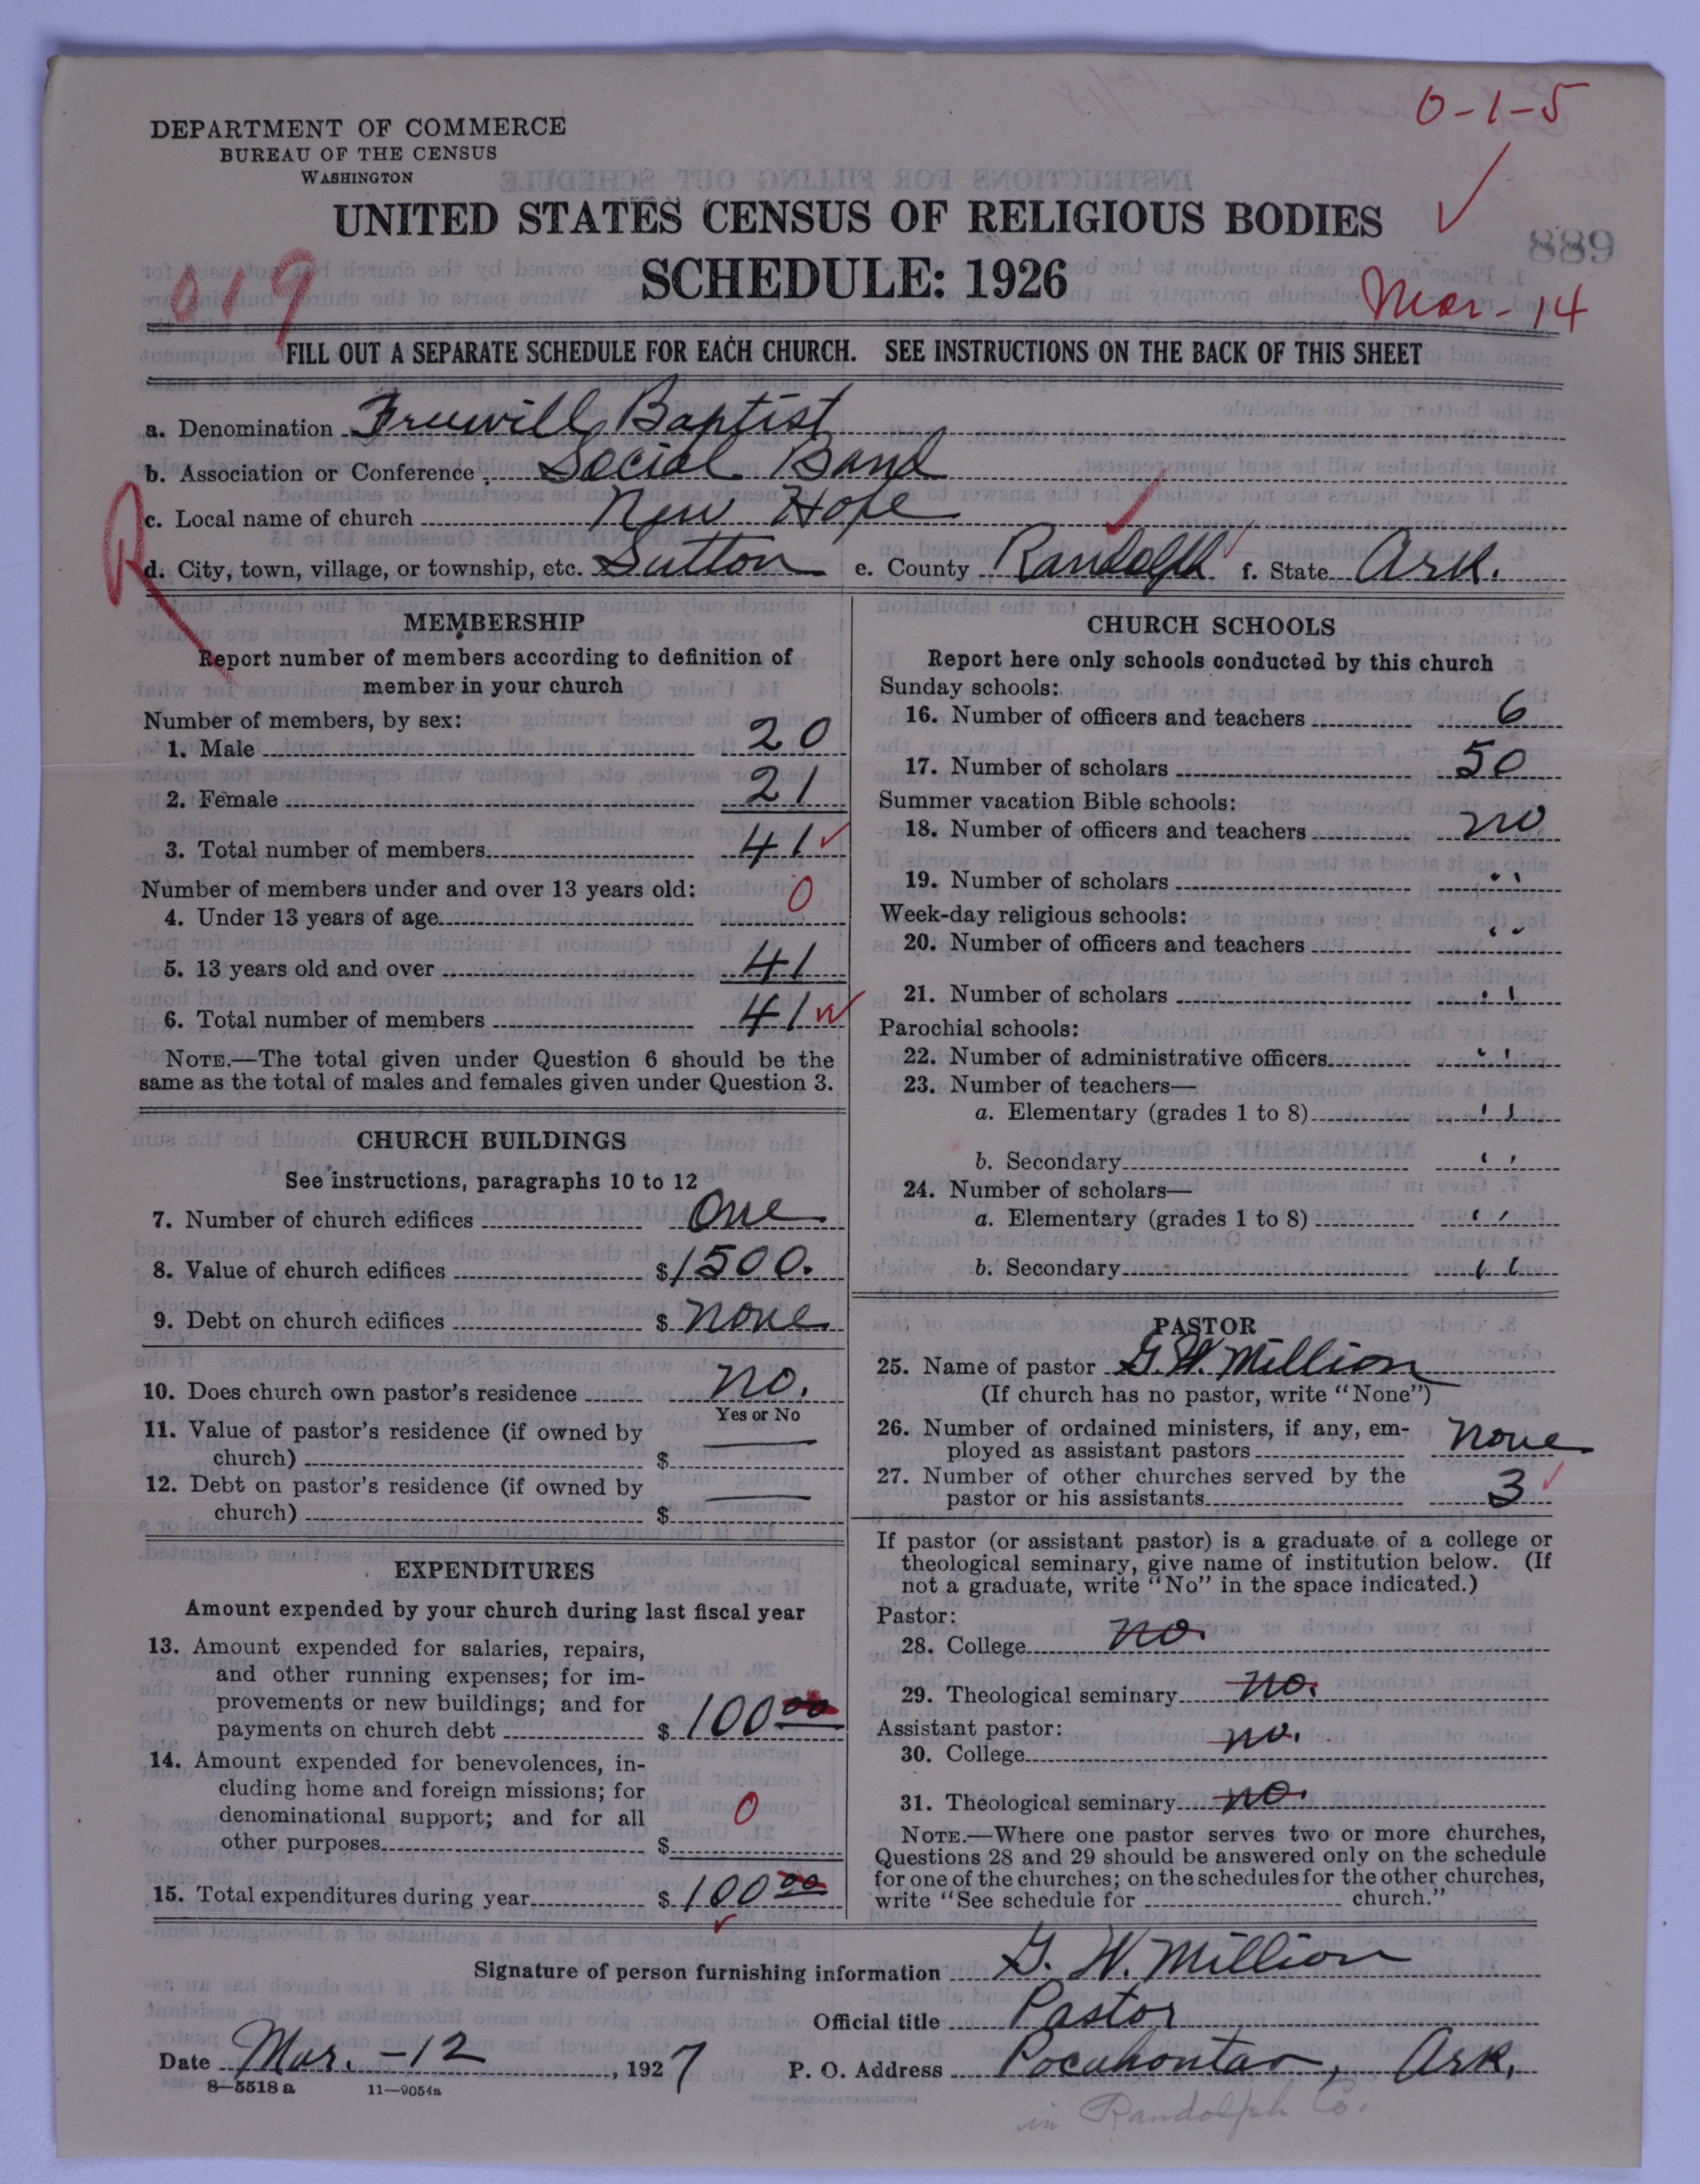 0-1-5
DEPARTMENT OF COMMERCE
BUREAU OF THE CENSUS
WASHINGTON
UNITED STATES CENSUS OF RELIGIOUS BODIES
889
SCHEDULE: 1926
019
Mar-14
FILL OUT A SEPARATE SCHEDULE FOR EACH CHURCH. SEE INSTRUCTIONS ON THE BACK OF THIS SHEET
a. Denomination Freewill Baptist
b. Association or Conference Social Band
c. Local name of church New Hope
R
d. City, town, village, or township, etc. Sutton e. County Randolph f. State Ark.
MEMBERSHIP
Report number of members according to definition of
member in your church
Number of members, by sex:
1. Male 20
2. Female 21
3. Total number of members 41
Number of members under and over 13 years old:
4. Under 13 years of age 0
5. 13 years old and over 41
6. Total number of members 41
NOTE.—The total given under Question 6 should be the
same as the total of males and females given under Question 3.
CHURCH BUILDINGS
See instructions, paragraphs 10 to 12
7. Number of church edifices One
8. Value of church edifices $1500.
9. Debt on church edifices $ none
10. Does church own pastor's residence no.
Yes or No
11. Value of pastor's residence (if owned by
church) $ —
12. Debt on pastor's residence (if owned by
church) $ —
EXPENDITURES
Amount expended by your church during last fiscal year
13. Amount expended for salaries, repairs,
and other running expenses; for im-
provements or new buildings; and for
payments on church debt $ 100 00
14. Amount expended for benevolences, in-
cluding home and foreign missions; for
denominational support; and for all
other purposes $ 0
15. Total expenditures during year $ 100 00
CHURCH SCHOOLS
Report here only schools conducted by this church
Sunday schools:
16. Number of officers and teachers 6
17. Number of scholars 50
Summer vacation Bible schools:
18. Number of officers and teachers no
19. Number of scholars "
Week-day religious schools:
20. Number of officers and teachers "
21. Number of scholars "
Parochial schools:
22. Number of administrative officers "
23. Number of teachers—
a. Elementary (grades 1 to 8) "
b. Secondary "
24. Number of scholars—
a. Elementary (grades 1 to 8) "
b. Secondary "
PASTOR
25. Name of pastor G. W. Million
(If church has no pastor, write "None")
26. Number of ordained ministers, if any, em-
ployed as assistant pastors none
27. Number of other churches served by the
pastor or his assistants 3
If pastor (or assistant pastor) is a graduate of a college or
theological seminary, give name of institution below. (If
not a graduate, write "No" in the space indicated.)
Pastor:
28. College no.
29. Theological seminary no.
Assistant pastor:
30. College no.
31. Theological seminary no.
NOTE.—Where one pastor serves two or more churches,
Questions 28 and 29 should be answered only on the schedule
for one of the churches; on the schedules for the other churches,
write "See schedule for church."
Signature of person furnishing information G. W. Million
Official title Pastor
Date Mar.-12, 1927 P. O. Address Pocahontas, Ark.
8—5518 a 11—9054a
in Randolph Co.